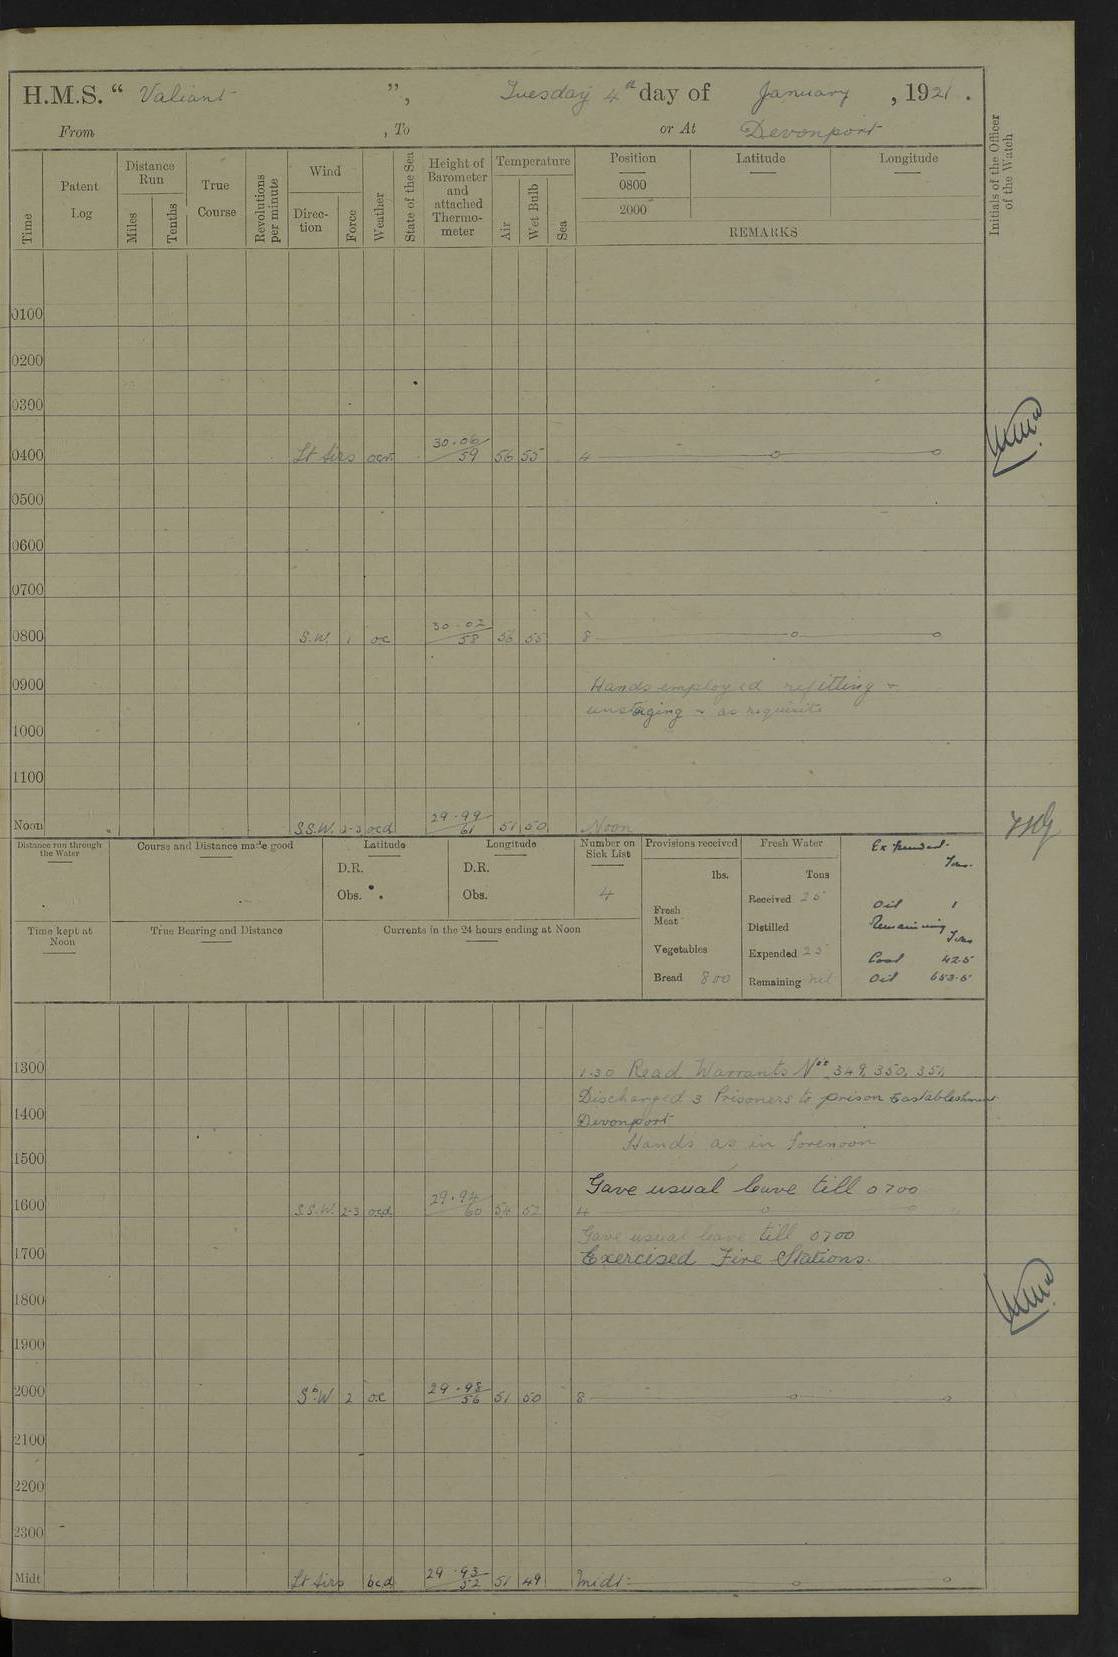 H.M.S. “ Valiant ”, Tuesday 4th day of January, 1921.
From , To or At Devonport
Time
Patent Log
Distance Run
Miles
Tenths
True Course
Revolutions per minute
Wind
Direc-tion
Force
Weather
State of the Sea
Height of Barometer and attached Thermo-meter
Temperature
Air
Wet Bulb
Sea
Position
0800
2000
Latitude
Longitude
REMARKS
Initials of the Officer of the Watch
0100
0200
0300
0400 Lt Airs 30.06 59 56 55 4
0500
0600
0700
0800 S.W. 1 oc 30.02 58 56 55 8
0900 Hands employed refitting &
unstaging & as requisite
1000
1100
Noon S.S.W. 2-3 ocd 29.99 61 51 50 Noon
Distance run through the Water
Course and Distance made good
Latitude
D.R.
Obs.
Longitude
D.R.
Obs.
Number on Sick List
4
Provisions received
lbs.
Fresh Meat
Vegetables
Bread 800
Fresh Water
Tons
Received 25
Distilled
Expended 25
Remaining nil
Expended
Tons.
Oil 1
Remaining
Tons
Coal 425
Oil 653.5
Time kept at Noon
True Bearing and Distance
Currents in the 24 hours ending at Noon
1300 1.30 Read Warrants Nos 349, 350, 351,
Discharged 3 Prisoners to prison Eastablishment
1400
Devonport
Hands as in forenoon
1500
Gave usual leave till 0700
1600 S.S.W. 2-3 ocd 29.94 60 54 52 4
Gave usual leave till 0700
1700 Exercised Fire Stations.
1800
1900
2000 SbW 2 oc 29.98 56 51 50 8
2100
2200
2300
Midt Lt Airs bcd 29.93 52 51 49 Midt: